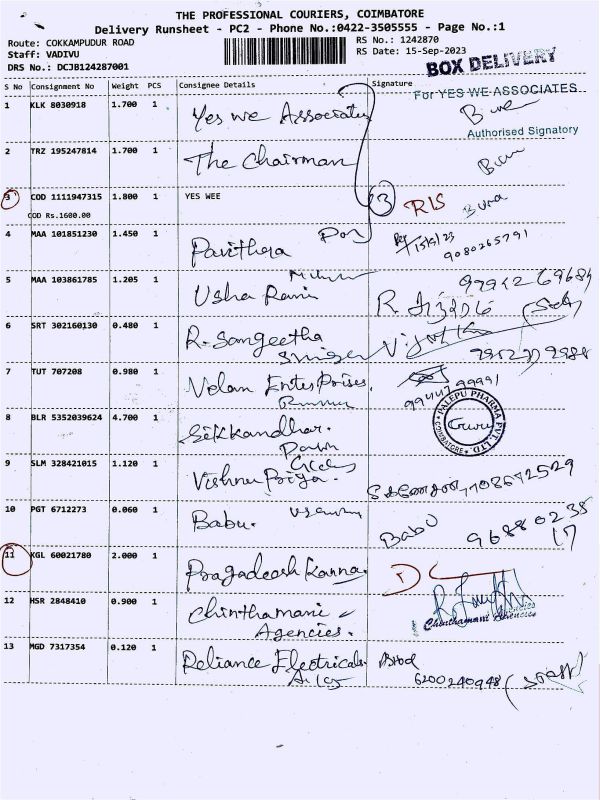 THE PROFESSIONAL COURIERS, COIMBATORE
Delivery Runsheet - PC2 - Phone No.:0422-3505555 - Page No.:1
Route: COKKAMPUDUR ROAD
RS No.: 1242870
Staff: VADIVU
RS Date: 15-Sep-2023
DRS No.: DCJB124287001
BOX DELIVERY
S No Consignment No Weight PCS Consignee Details Signature
For YES WE ASSOCIATES
1 KLK 8030918 1.700 1 Yes we Associates
Authorised Signatory
2 TRZ 195247814 1.700 1 The Chairman
3 COD 1111947315 1.800 1 YES WEE 3 RTS
COD Rs.1600.00
4 MAA 101851230 1.450 1 Pavithra 15/9/23
9080265791
5 MAA 103861785 1.205 1 Usha Rani
6 SRT 302160130 0.480 1 R. Sangeetha
7 TUT 707208 0.980 1 Velan Enterprises.
PALEPU PHARMA PVT. LTD. COIMBATORE
8 BLR 5352039624 4.700 1 Sikkandhar.
9 SLM 328421015 1.120 1 Vishnu Priya.
10 PGT 6712273 0.060 1 Babu. Babu 96880238
17
11 KGL 60021780 2.000 1 Pragadeesh Kanna.
12 HSR 2848410 0.900 1 Chinthamani
Agencies.
Chinthamani Agencies
13 MGD 7317354 0.120 1 Reliance Electricals
6200240948